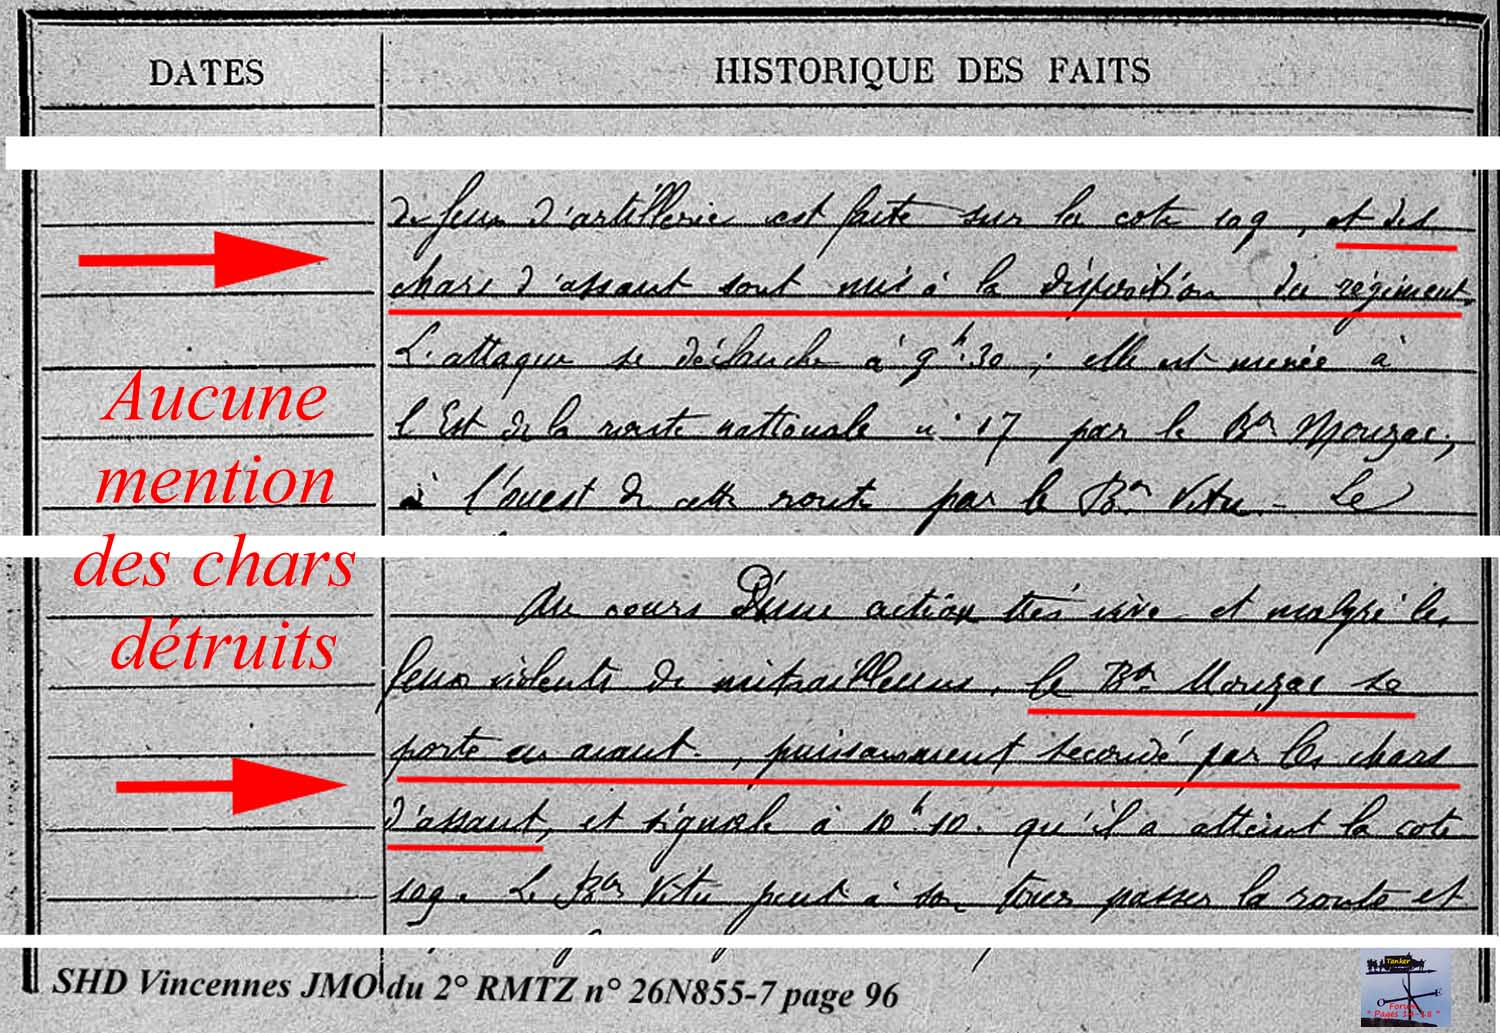 DATES
HISTORIQUE DES FAITS
de feux d'artillerie est faite sur la cote 109, et des
chars d'assaut sont mis à la disposition du régiment.
L'attaque se déclanche à 9h.30 ; elle est menée à
l'Est de la route nationale n° 17 par le Bon Mouzac,
à l'ouest de cette route par le Bon Vitu. - Le
Au cours D'une action très vive et malgré les
feux violents de mitrailleuses, le Bon Mouzac se
porte en avant, puissamment secondé par les chars
d'assaut, et signale à 10h.10. qu'il a atteint la cote
109. Le Bon Vitu peut à son tour passer la route et
Aucune
mention
des chars
détruits
SHD Vincennes JMO du 2° RMTZ n° 26N855-7 page 96
Tanker
O E
Forum
" Pages 14-18 "